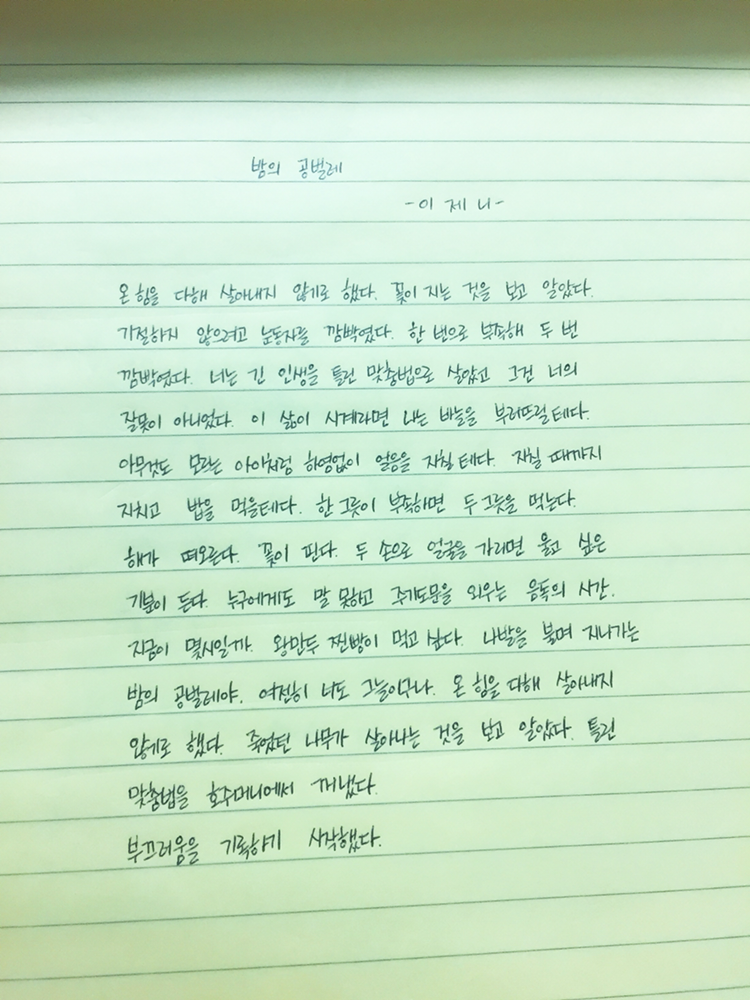 밤의 공벌레
-이제니-
온 힘을 다해 살아내지 않기로 했다. 꽃이 지는 것을 보고 알았다.
기절하지 않으려고 눈동자를 깜박였다. 한 번으로 부족해 두 번
깜박였다. 너는 긴 인생을 틀린 맞춤법으로 살았고 그건 너의
잘못이 아니었다. 이 삶이 시계라면 나는 바늘을 부러뜨릴테다.
아무것도 모르는 아이처럼 하염없이 얼음을 지칠테다. 지칠 때까지
지치고 밥을 먹을테다. 한 그릇이 부족하면 두 그릇을 먹는다.
해가 떠오른다. 꽃이 핀다. 두 손으로 얼굴을 가리면 울고 싶은
기분이 든다. 누구에게도 말 못하고 주기도문을 외우는 음독의 시간.
지금이 몇시일까. 왕만두 찐빵이 먹고 싶다. 나발을 불며 지나가는
밤의 공벌레야. 여전히 너도 그늘이구나. 온 힘을 다해 살아내지
않기로 했다. 죽었던 나무가 살아나는 것을 보고 알았다. 틀린
맞춤법을 호주머니에서 꺼냈다.
부끄러움을 기록하기 시작했다.